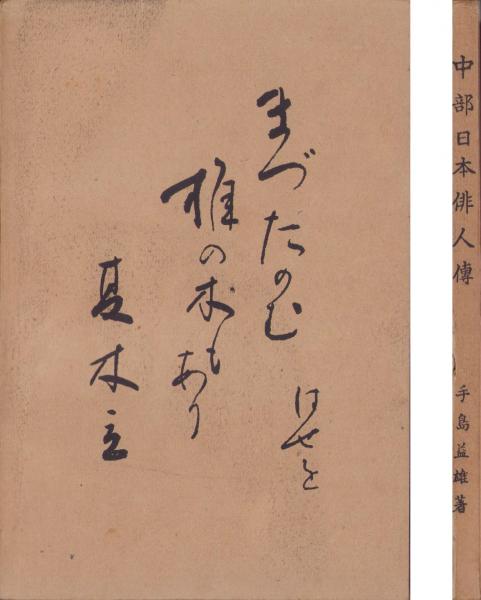 まづたのむ
椎の木もあり
夏木立
はせを
中部日本俳人傳
手島益雄著